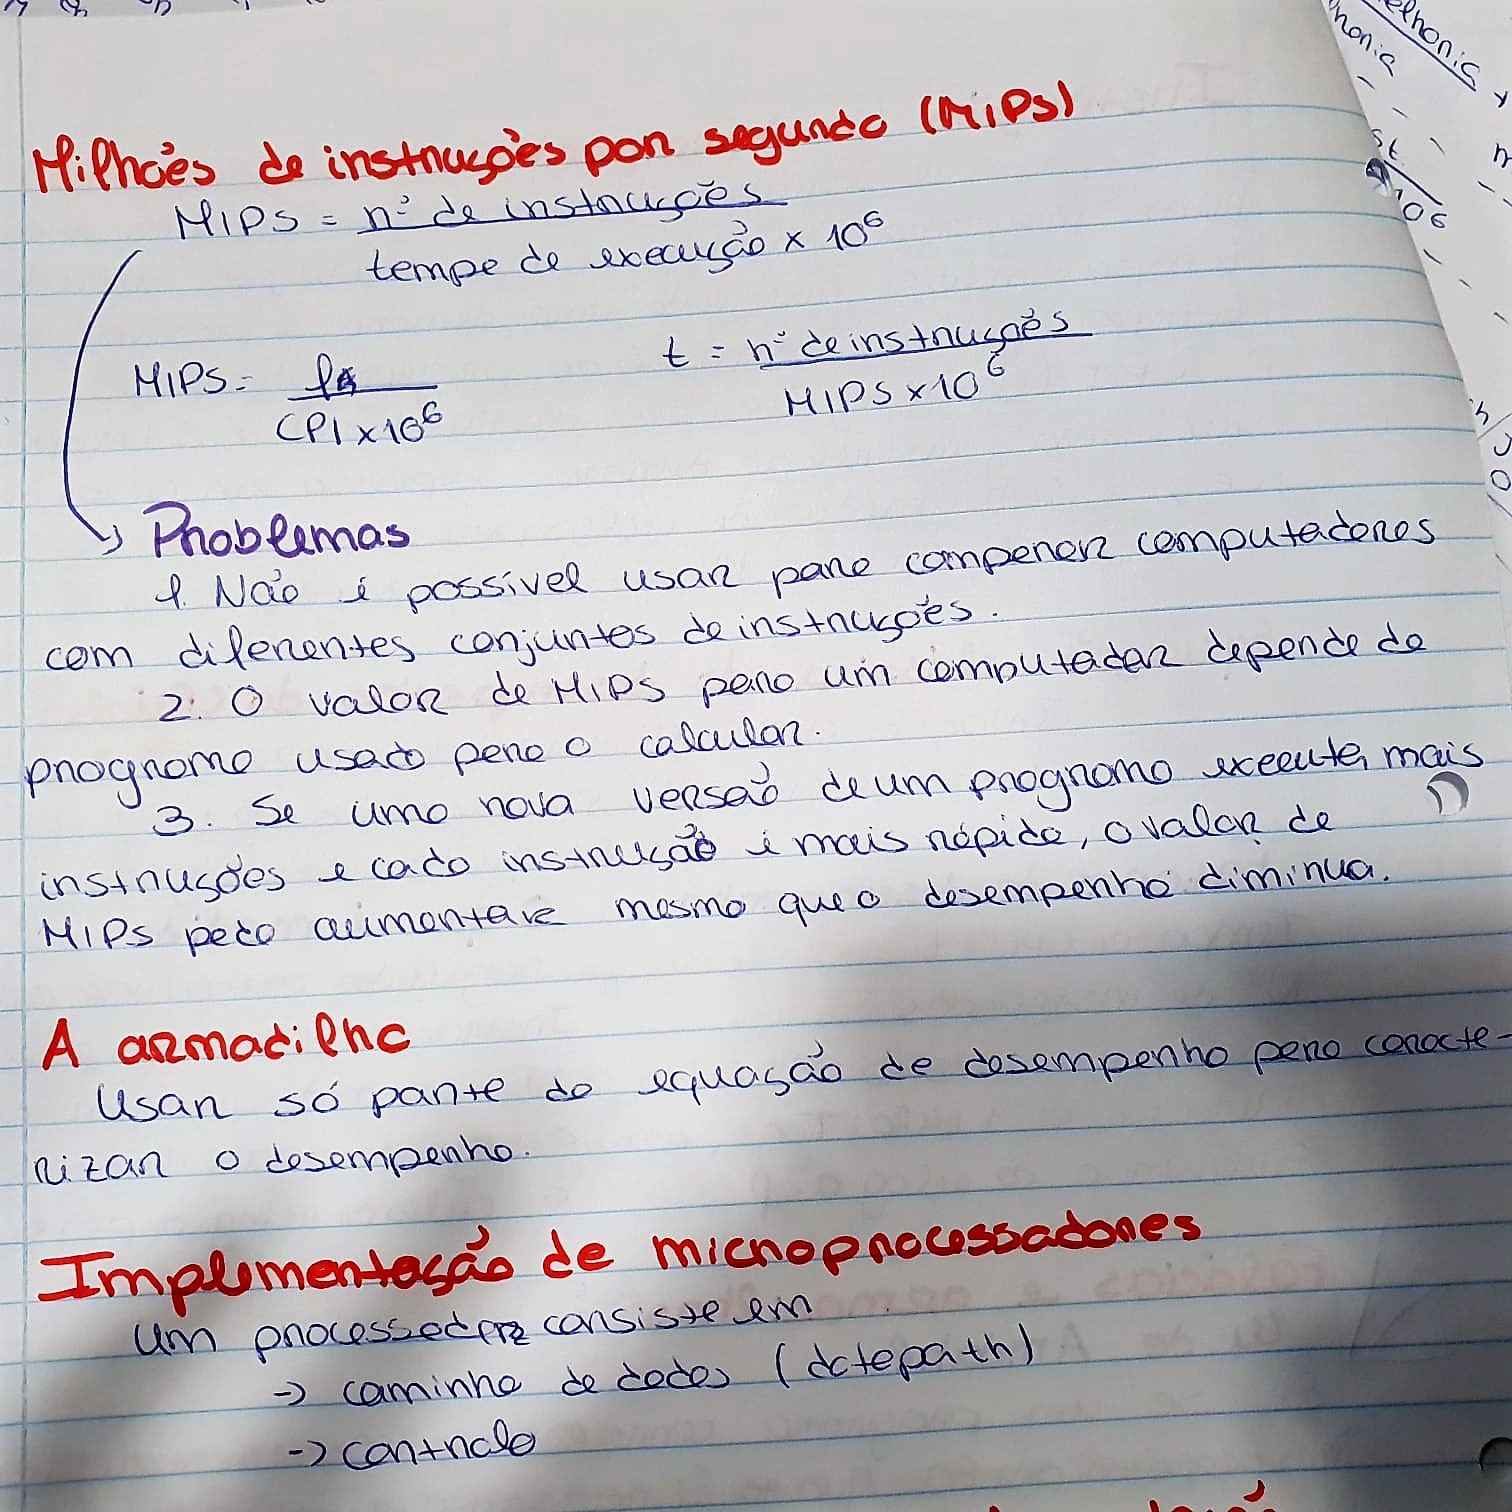 Milhões de instruções por segundo (MIPS)
MIPS = nº de instruções
tempo de execução × 10⁶
MIPS =
CPI × 10⁶
t = nº de instruções
MIPS × 10⁶
Problemas
1. Não é possível usar para comparar computadores
com diferentes conjuntos de instruções.
2. O valor de MIPS para um computador depende do
programa usado para o calcular.
3. Se uma nova versão de um programa executa mais
instruções e cada instrução é mais rápida, o valor de
MIPS pode aumentar mesmo que o desempenho diminua.
A armadilha
Usar só parte da equação de desempenho para caracte-
rizar o desempenho.
Implementação de microprocessadores
Um processador consiste em
→ caminho de dados (datapath)
→ controlo